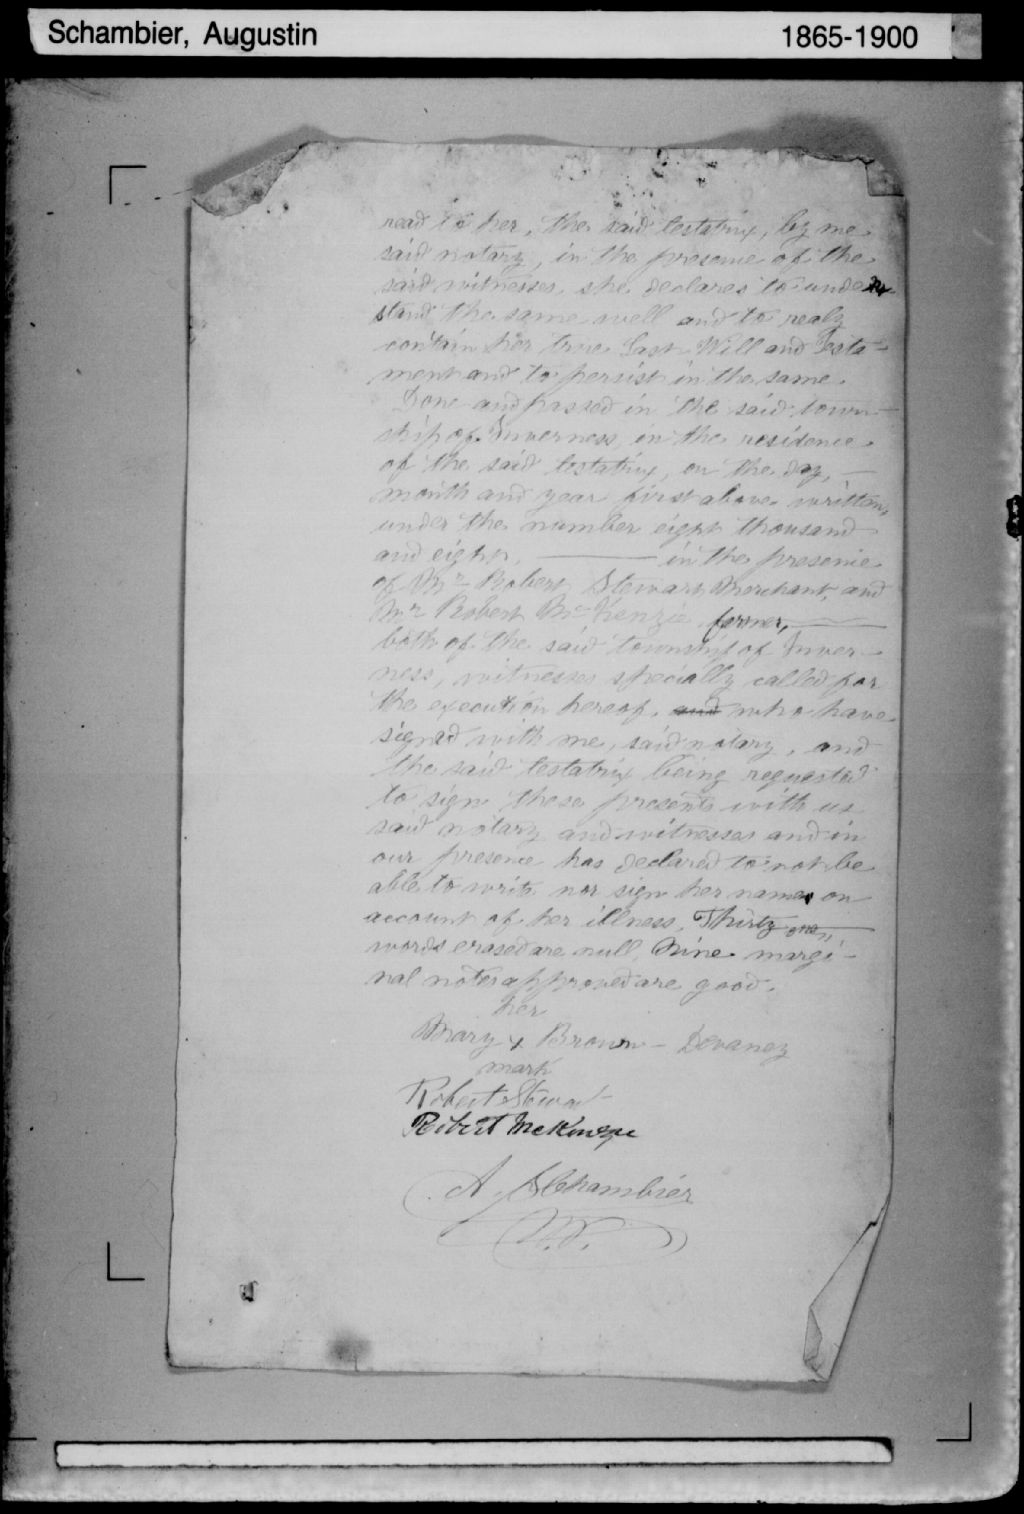 Schambier, Augustin 1865-1900
read to her, the said testatrix, by me
said notary, in the presence of the
said witnesses, she declares to under
stand the same well and to realy
contain her true Last Will and Testa-
ment and to persist in the same.
Done and passed in the said town-
ship of Inverness, in the residence
of the said testatrix, on the day, —
month and year first above written,
under the number eight thousand
and eight, ——— in the presence
of Mr Robert Stewart Merchant, and
Mr Robert McKenzie farmer, ———
both of the said township of Inver-
ness, witnesses specially called for
the execution hereof, and who have
signed with me, said notary, and
the said testatrix being requested
to sign these presents with us
said notary and witnesses and in
our presence has declared to not be
able to write nor sign her name, on
account of her illness. Thirty one
words erased are null, Nine margi-
nal notes approved are good.
her
Mary x Brown - Devaney
mark
Robert Stewart
Robert McKenzie
A. Schambier
N.P.